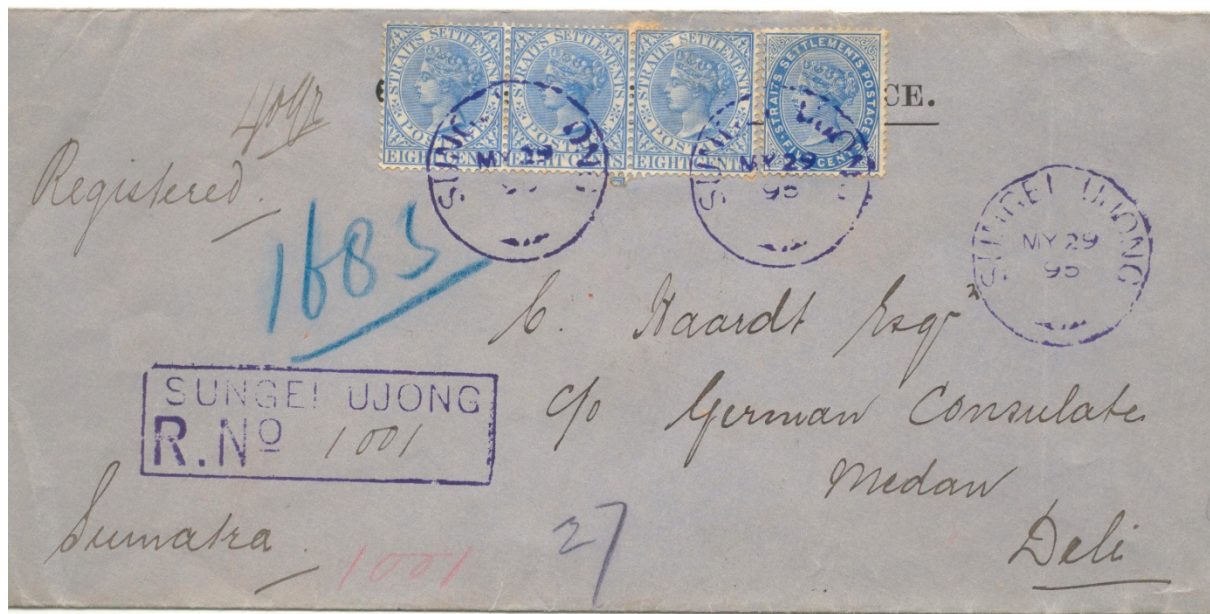 STRAITS SETTLEMENTS
POSTAGE
EIGHT CENTS
STRAITS SETTLEMENTS
POSTAGE
EIGHT CENTS
STRAITS SETTLEMENTS
POSTAGE
EIGHT CENTS
STRAITS SETTLEMENTS POSTAGE
FIVE CENTS
CE.
40gr
Registered.
1683
SUNGEI UJONG
MY 29
95
SUNGEI UJONG
MY 29
95
SUNGEI UJONG
MY 29
95
C. Haardt Esqr
SUNGEI UJONG
R. No 1001
c/o German Consulate
Medan
Deli
Sumatra
1001
27